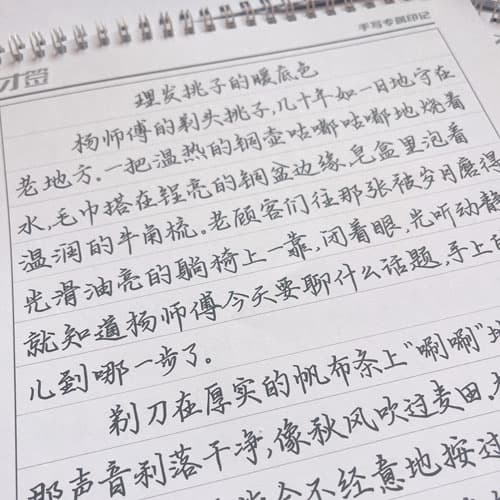 才签
手写专属印记
理发挑子的暖底色
杨师傅的剃头挑子,几十年如一日地守在
老地方。一把温热的铜壶咕嘟咕嘟地烧着
水,毛巾搭在锃亮的铜盆边缘,皂盒里泡着
温润的牛角梳。老顾客们往那张被岁月磨得
光滑油亮的躺椅上一靠,闭着眼,光听动静
就知道杨师傅今天要聊什么话题,手上的
儿到哪一步了。
剃刀在厚实的帆布条上"唰唰"地
那声音利落干净,像秋风吹过麦田,
会不经意地按过